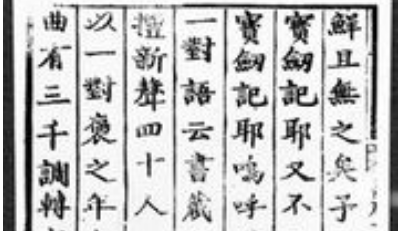 鮮且無之矣予
寳劔記耶又不
寳劔記耶嗚呼
一對語云書蔵
擅新聲四十人
以一對褒之年
曲有三千調轉